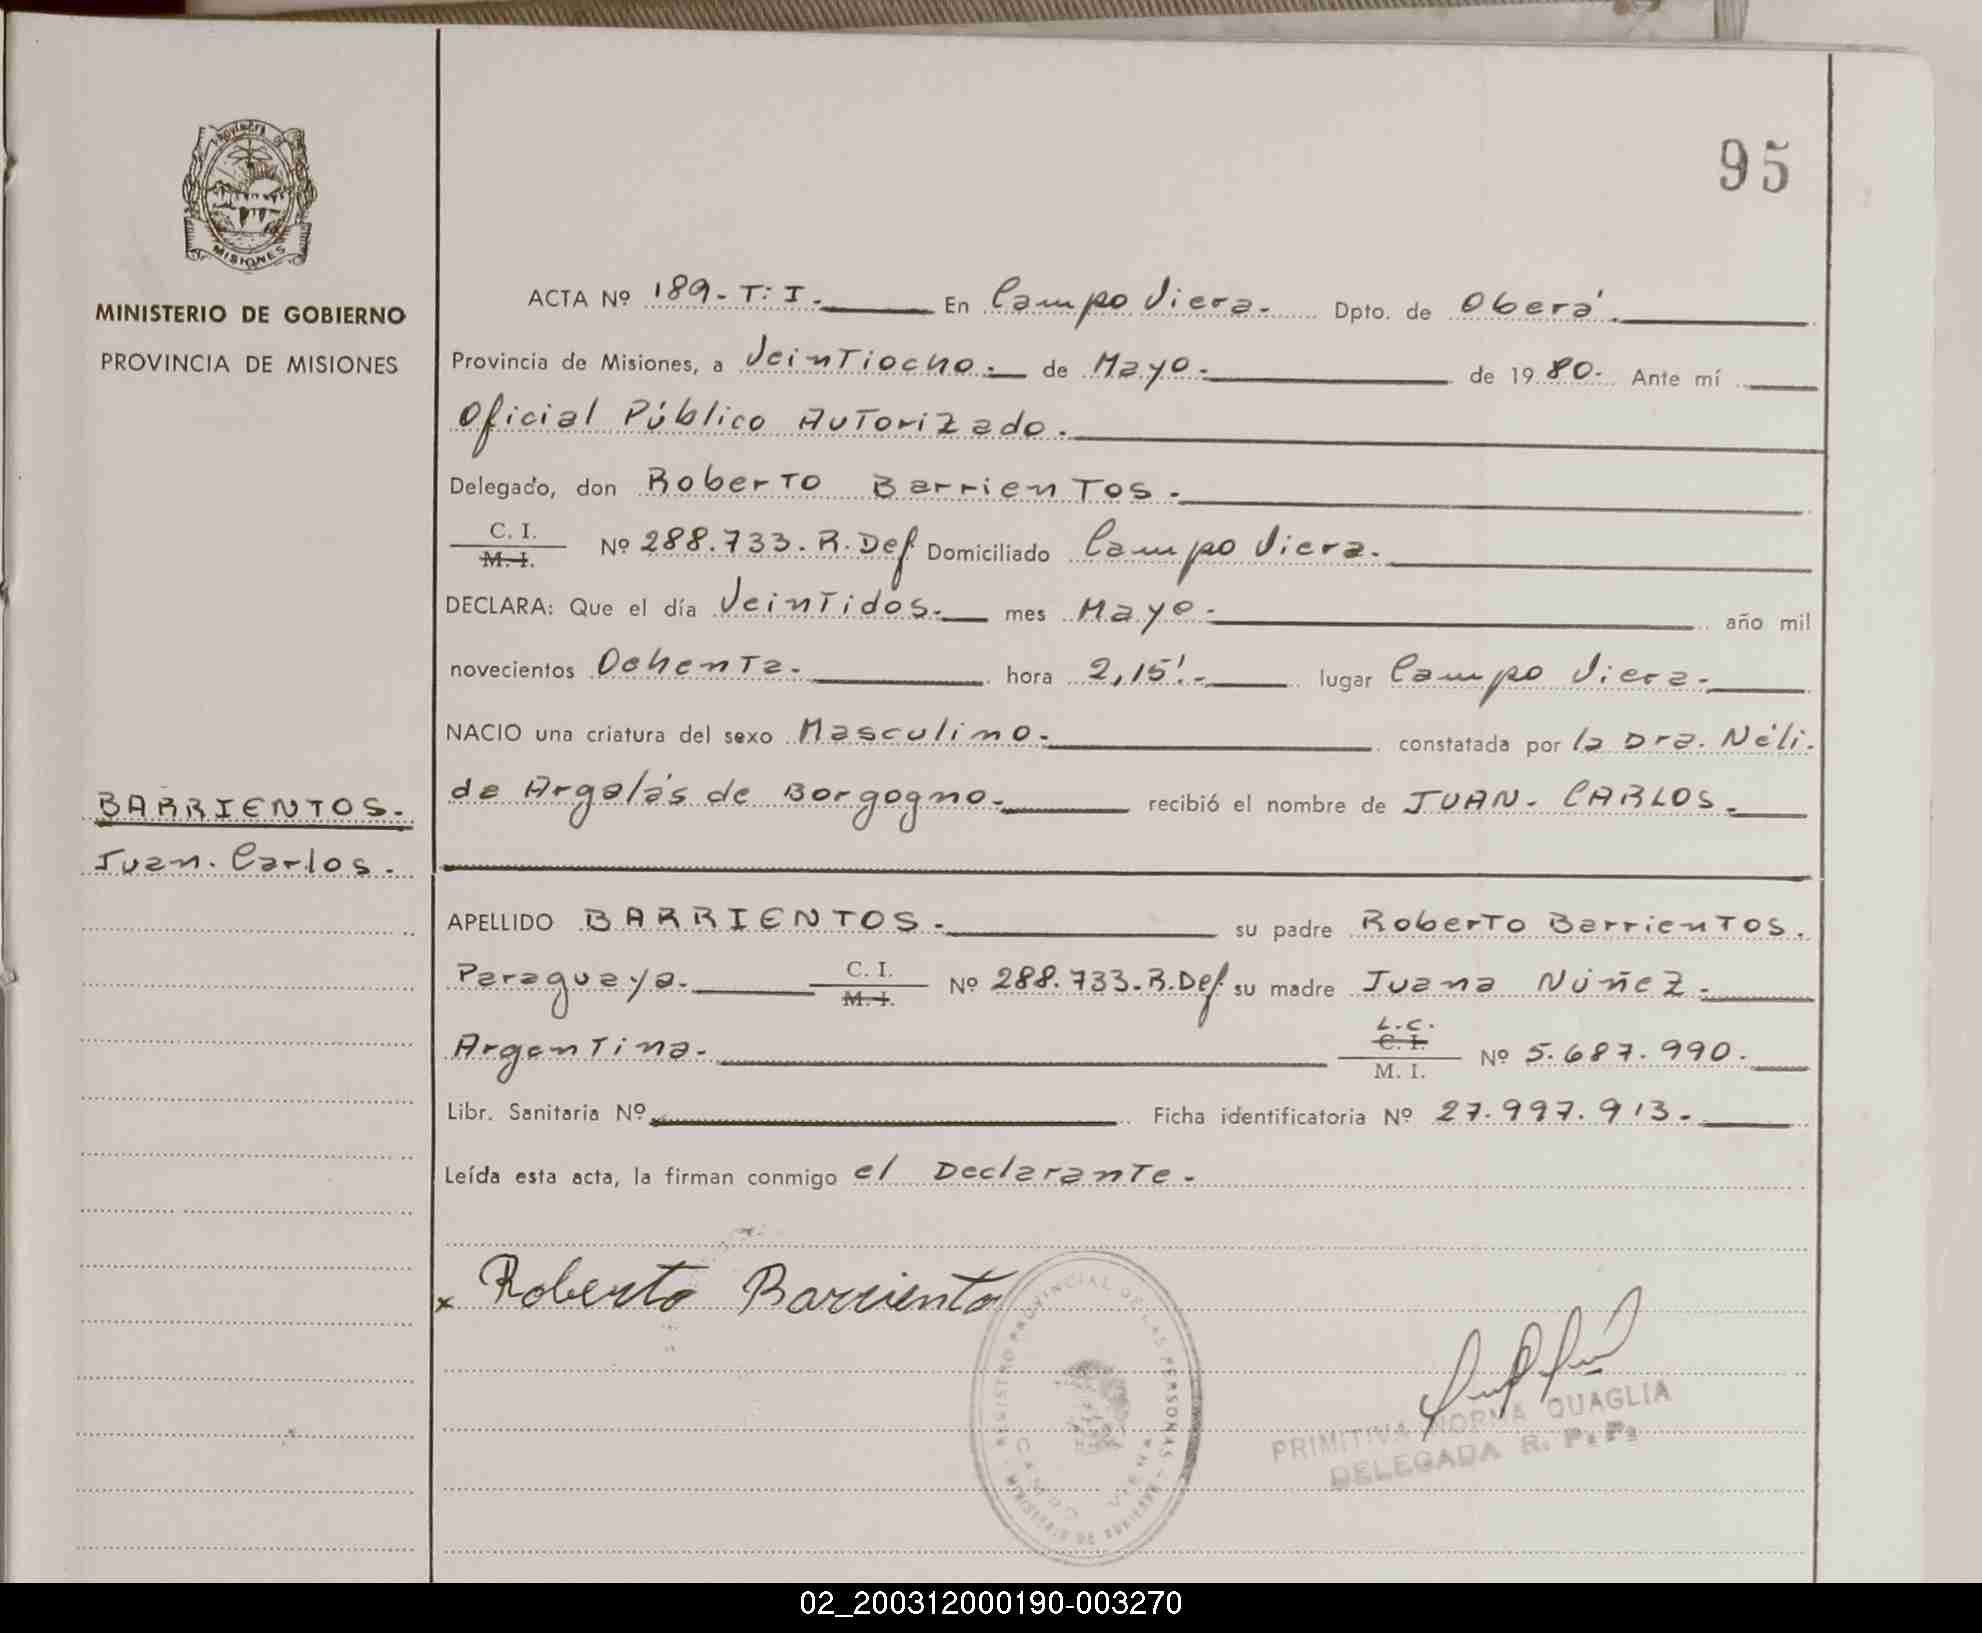 95
MINISTERIO DE GOBIERNO
PROVINCIA DE MISIONES
BARRIENTOS.
Juan. Carlos.
ACTA Nº 189- T: I. En Campo Viera. Dpto. de Oberá.
Provincia de Misiones, a Veintiocho. de Mayo. de 1980. Ante mí
Oficial Público Autorizado.
Delegado, don Roberto Barrientos.
C. I.
M. I. Nº 288.733. R. Def. Domiciliado Campo Viera.
DECLARA: Que el día Veintidos. mes Mayo. año mil
novecientos Ochenta. hora 2,15'. lugar Campo Viera.
NACIO una criatura del sexo Masculino. constatada por la Dra. Néli.
da Argelás de Borgogno. recibió el nombre de JUAN. CARLOS.
APELLIDO BARRIENTOS. su padre Roberto Barrientos.
Paraguaya. C. I.
M. I. Nº 288.733. R. Def. su madre Juana Núñez.
Argentina. L.C.
C. I.
M. I. Nº 5.687.990.
Libr. Sanitaria Nº Ficha identificatoria Nº 27.997.913.
Leída esta acta, la firman conmigo el Declarante.
x Roberto Barriento
REGISTRO PROVINCIAL DE LAS PERSONAS
CAMPO VIERA
PRIMITIVA NORMA QUAGLIA
DELEGADA R. P. P.
02_200312000190-003270